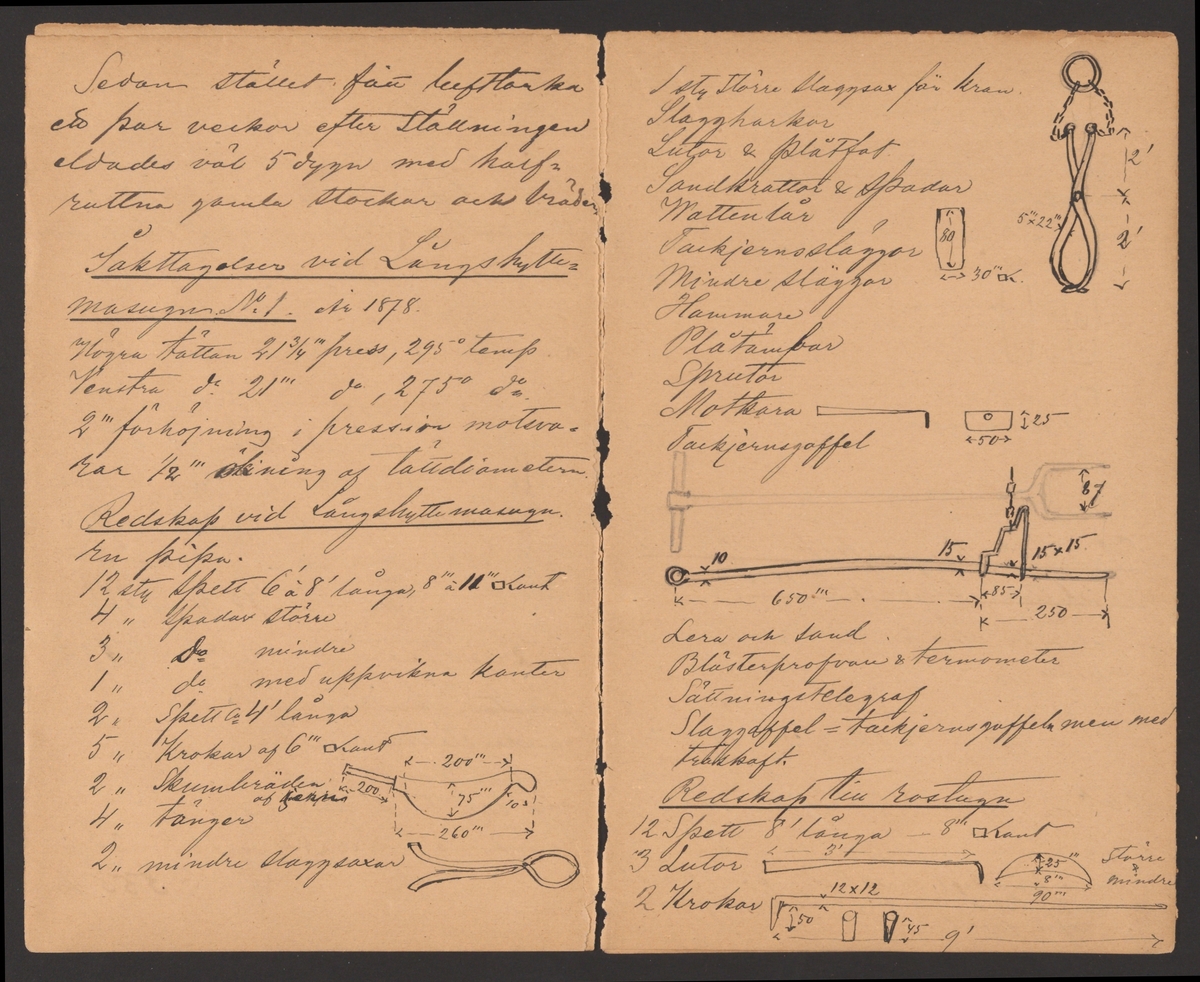 Sedan stället fått lufttorka
ett par veckor efter ställningen
eldades väl 5 dygn med half-
ruttna gamla stockar och bräder.
Iakttagelser vid Långshytte-
masugn No 1. År 1878.
Högra tättan 21 3/4''' press, 295° temp.
Venstra do 21''' do, 275° do
2''' förhöjning i pression motsva-
rar 1/2''' ökning af tättdiametern.
Redskap vid Långshytte masugn.
En pipa.
12 sty Spett 6' à 8' långa, 8''' à 11''' □kant
4 " Spadar större
3 " Do mindre
1 " do med uppvikna kanter
2 " Spett ca 4' långa
5 " Krokar af 6''' □kant
2 " Skumbräden
af jern
200'''
200
75'''
10
260'''
4 " tänger
2 " mindre slaggsaxar
1 sty större slaggsax för kran.
Slaggharkor
Lutor & Plåtfat
Sandkrattor & Spadar
Wattenlår
Tackjernssläggor
Mindre släggor
Hammare
Plåtämbar
Sprutor
Motkara
Tackjernsgaffel
2'
2'
5'''×22'''
80
30''' □k.
25
50
87
10
15
15×15
650'''
85
250
Lera och sand.
Blästerprofvare & termometer
Sättningstelegraf
Slaggaffel = tackjernsgaffeln men med
träskaft.
Redskap till rostugn
12 Spett 8' långa — 8''' □kant
3 Lutor
3'
25'''
8'''
90'''
Större
&
mindre
2 Krokar
12×12
50
45
9'